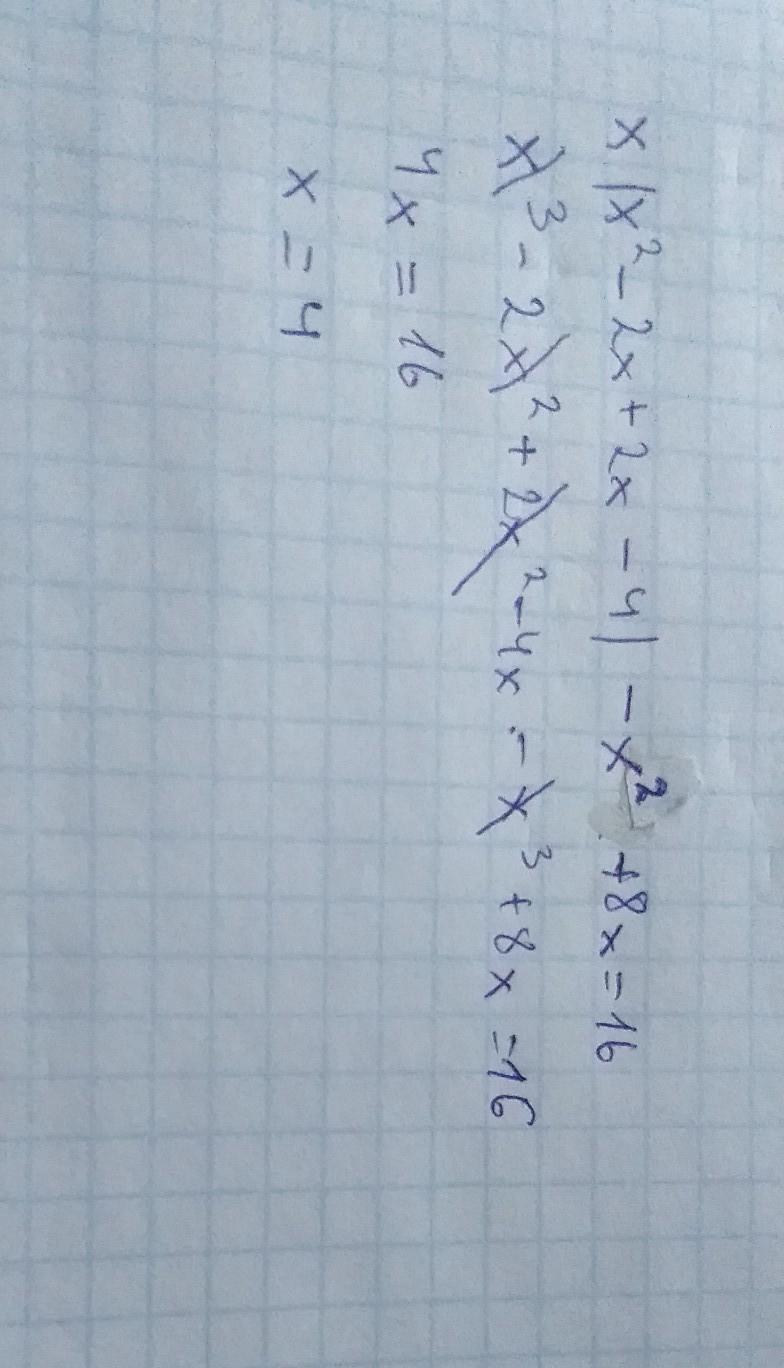 x(x²-2x+2x-4)-x²+8x=16
x³-2x²+2x²-4x-x³+8x=16
4x=16
x=4